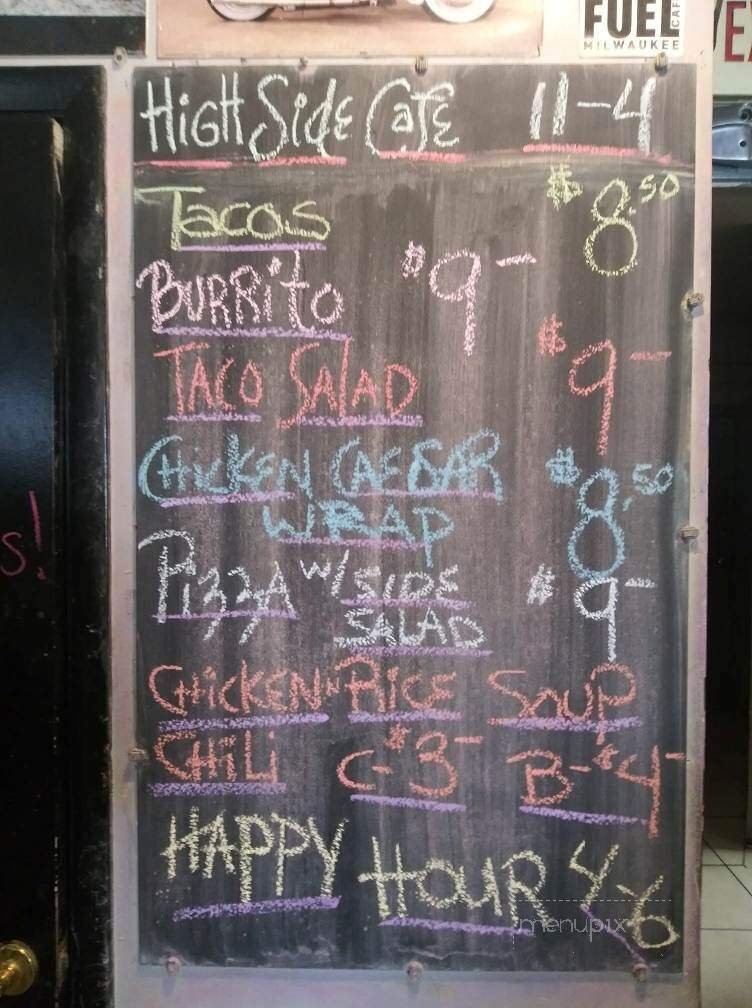 FUEL CAFE
MILWAUKEE
HIGH SIDE CAFE 11-4
TACOS $8.50
BURRITO $9-
TACO SALAD $9-
CHICKEN CAESAR $8.50
WRAP
PIZZA W/ SIDE $9-
SALAD
CHICKEN N RICE SOUP
CHILI C-$3- B-$4-
HAPPY HOUR 4-6
S!
menupix